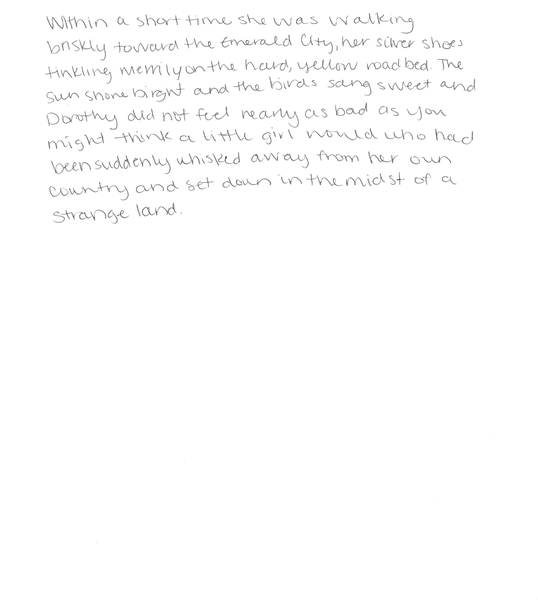 Within a short time she was walking
briskly toward the Emerald City, her silver shoes
tinkling merrily on the hard, yellow roadbed. The
sun shone birght and the birds sang sweet and
Dorothy did not feel nearly as bad as you
might think a little girl would who had
been suddenly whisked away from her own
country and set down in the midst of a
strange land.